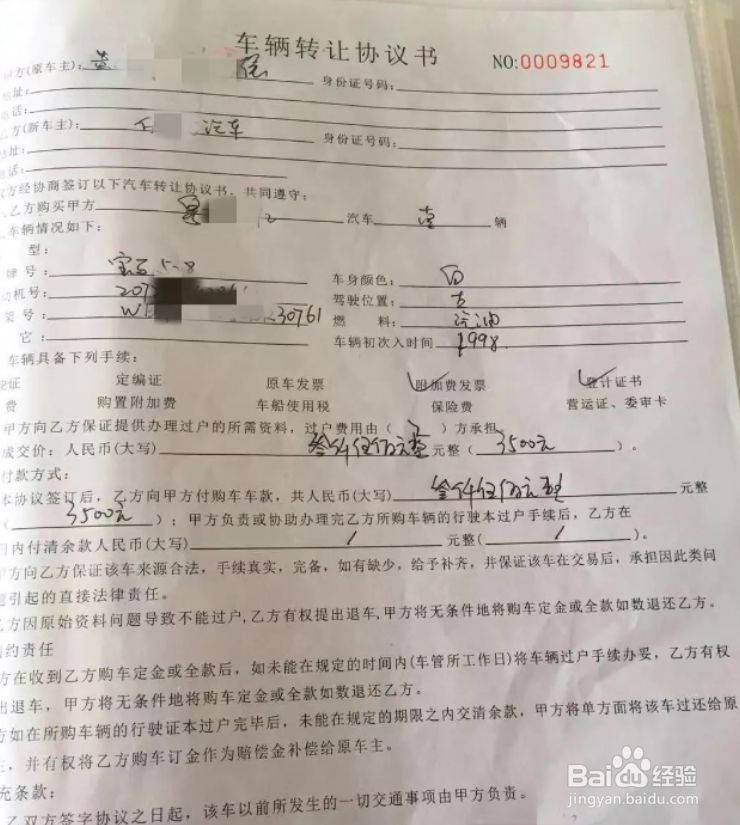 车辆转让协议书 NO:0009821
方(原车主): 身份证号码:
址:
话:
乙方(新车主): 汽车 身份证号码:
址:
话:
方经协商签订以下汽车转让协议书,共同遵守:
乙方购买甲方 汽车 壹 辆
车辆情况如下:
型:
牌号: 车身颜色: 白
动机号: 驾驶位置: 左
架号: 30761 燃 料: 汽油
它: 车辆初次入时间 1998
车辆具备下列手续:
证 定编证 原车发票 附加费发票 登计证书
费 购置附加费 车船使用税 保险费 营运证、委审卡
甲方向乙方保证提供办理过户的所需资料,过户费用由( )方承担
成交价:人民币(大写) 叁仟伍佰元整 元整( 3500元 )。
付款方式:
本协议签订后,乙方向甲方付购车车款,共人民币(大写) 叁仟伍佰元整 元整
( 3500元 );甲方负责或协助办理完乙方所购车辆的行驶本过户手续后,乙方在
日内付清余款人民币(大写) / 元整( / )。
甲方向乙方保证该车来源合法,手续真实,完备,如有缺少,给予补齐,并保证该车在交易后,承担因此类问
题引起的直接法律责任。
方因原始资料问题导致不能过户,乙方有权提出退车,甲方将无条件地将购车定金或全款如数退还乙方。
约责任
方在收到乙方购车定金或全款后,如未能在规定的时间内(车管所工作日)将车辆过户手续办妥,乙方有权
出退车,甲方将无条件地将购车定金或全款如数退还乙方。
方如在所购车辆的行驶证本过户完毕后,未能在规定的期限之内交清余款,甲方将单方面将该车过还给原
主,并有权将乙方购车订金作为赔偿金补偿给原车主。
充条款:
乙双方签字协议之日起,该车以前所发生的一切交通事项由甲方负责。
Baidu经验
jingyan.baidu.com